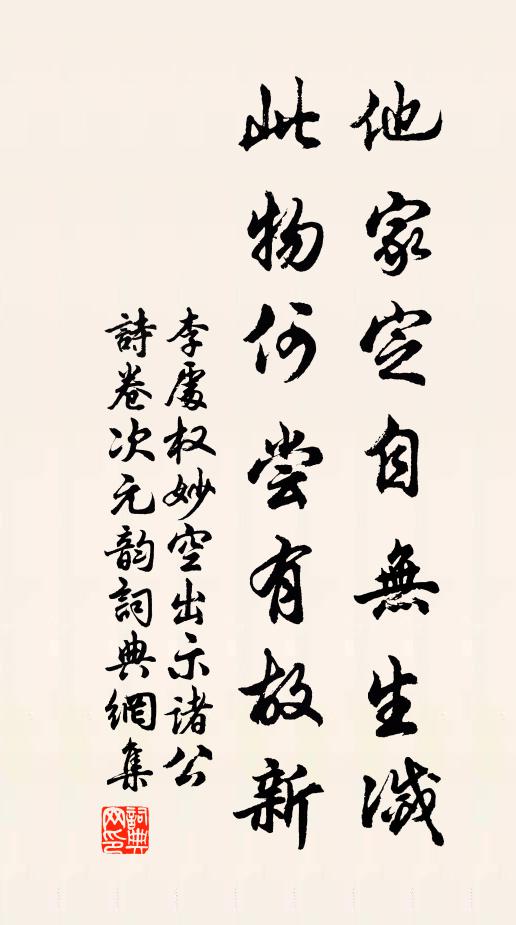 他家定自無生滅
此物何尝有故新
李處权妙空出示诸公
詩卷次元韵詞典網集
詞典网印